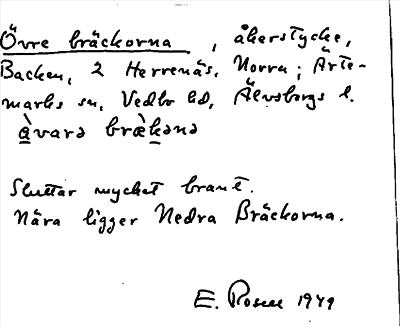 Övre bräckorna, åkerstycke,
Backen, 2 Herrenäs, Norra; Ärte-
marks sn, Vedbo hd, Älvsborgs l.
ə̀vara bræ̀kənə
Sluttar mycket brant.
Nära ligger Nedra Bräckorna.
E. Rosell 1949